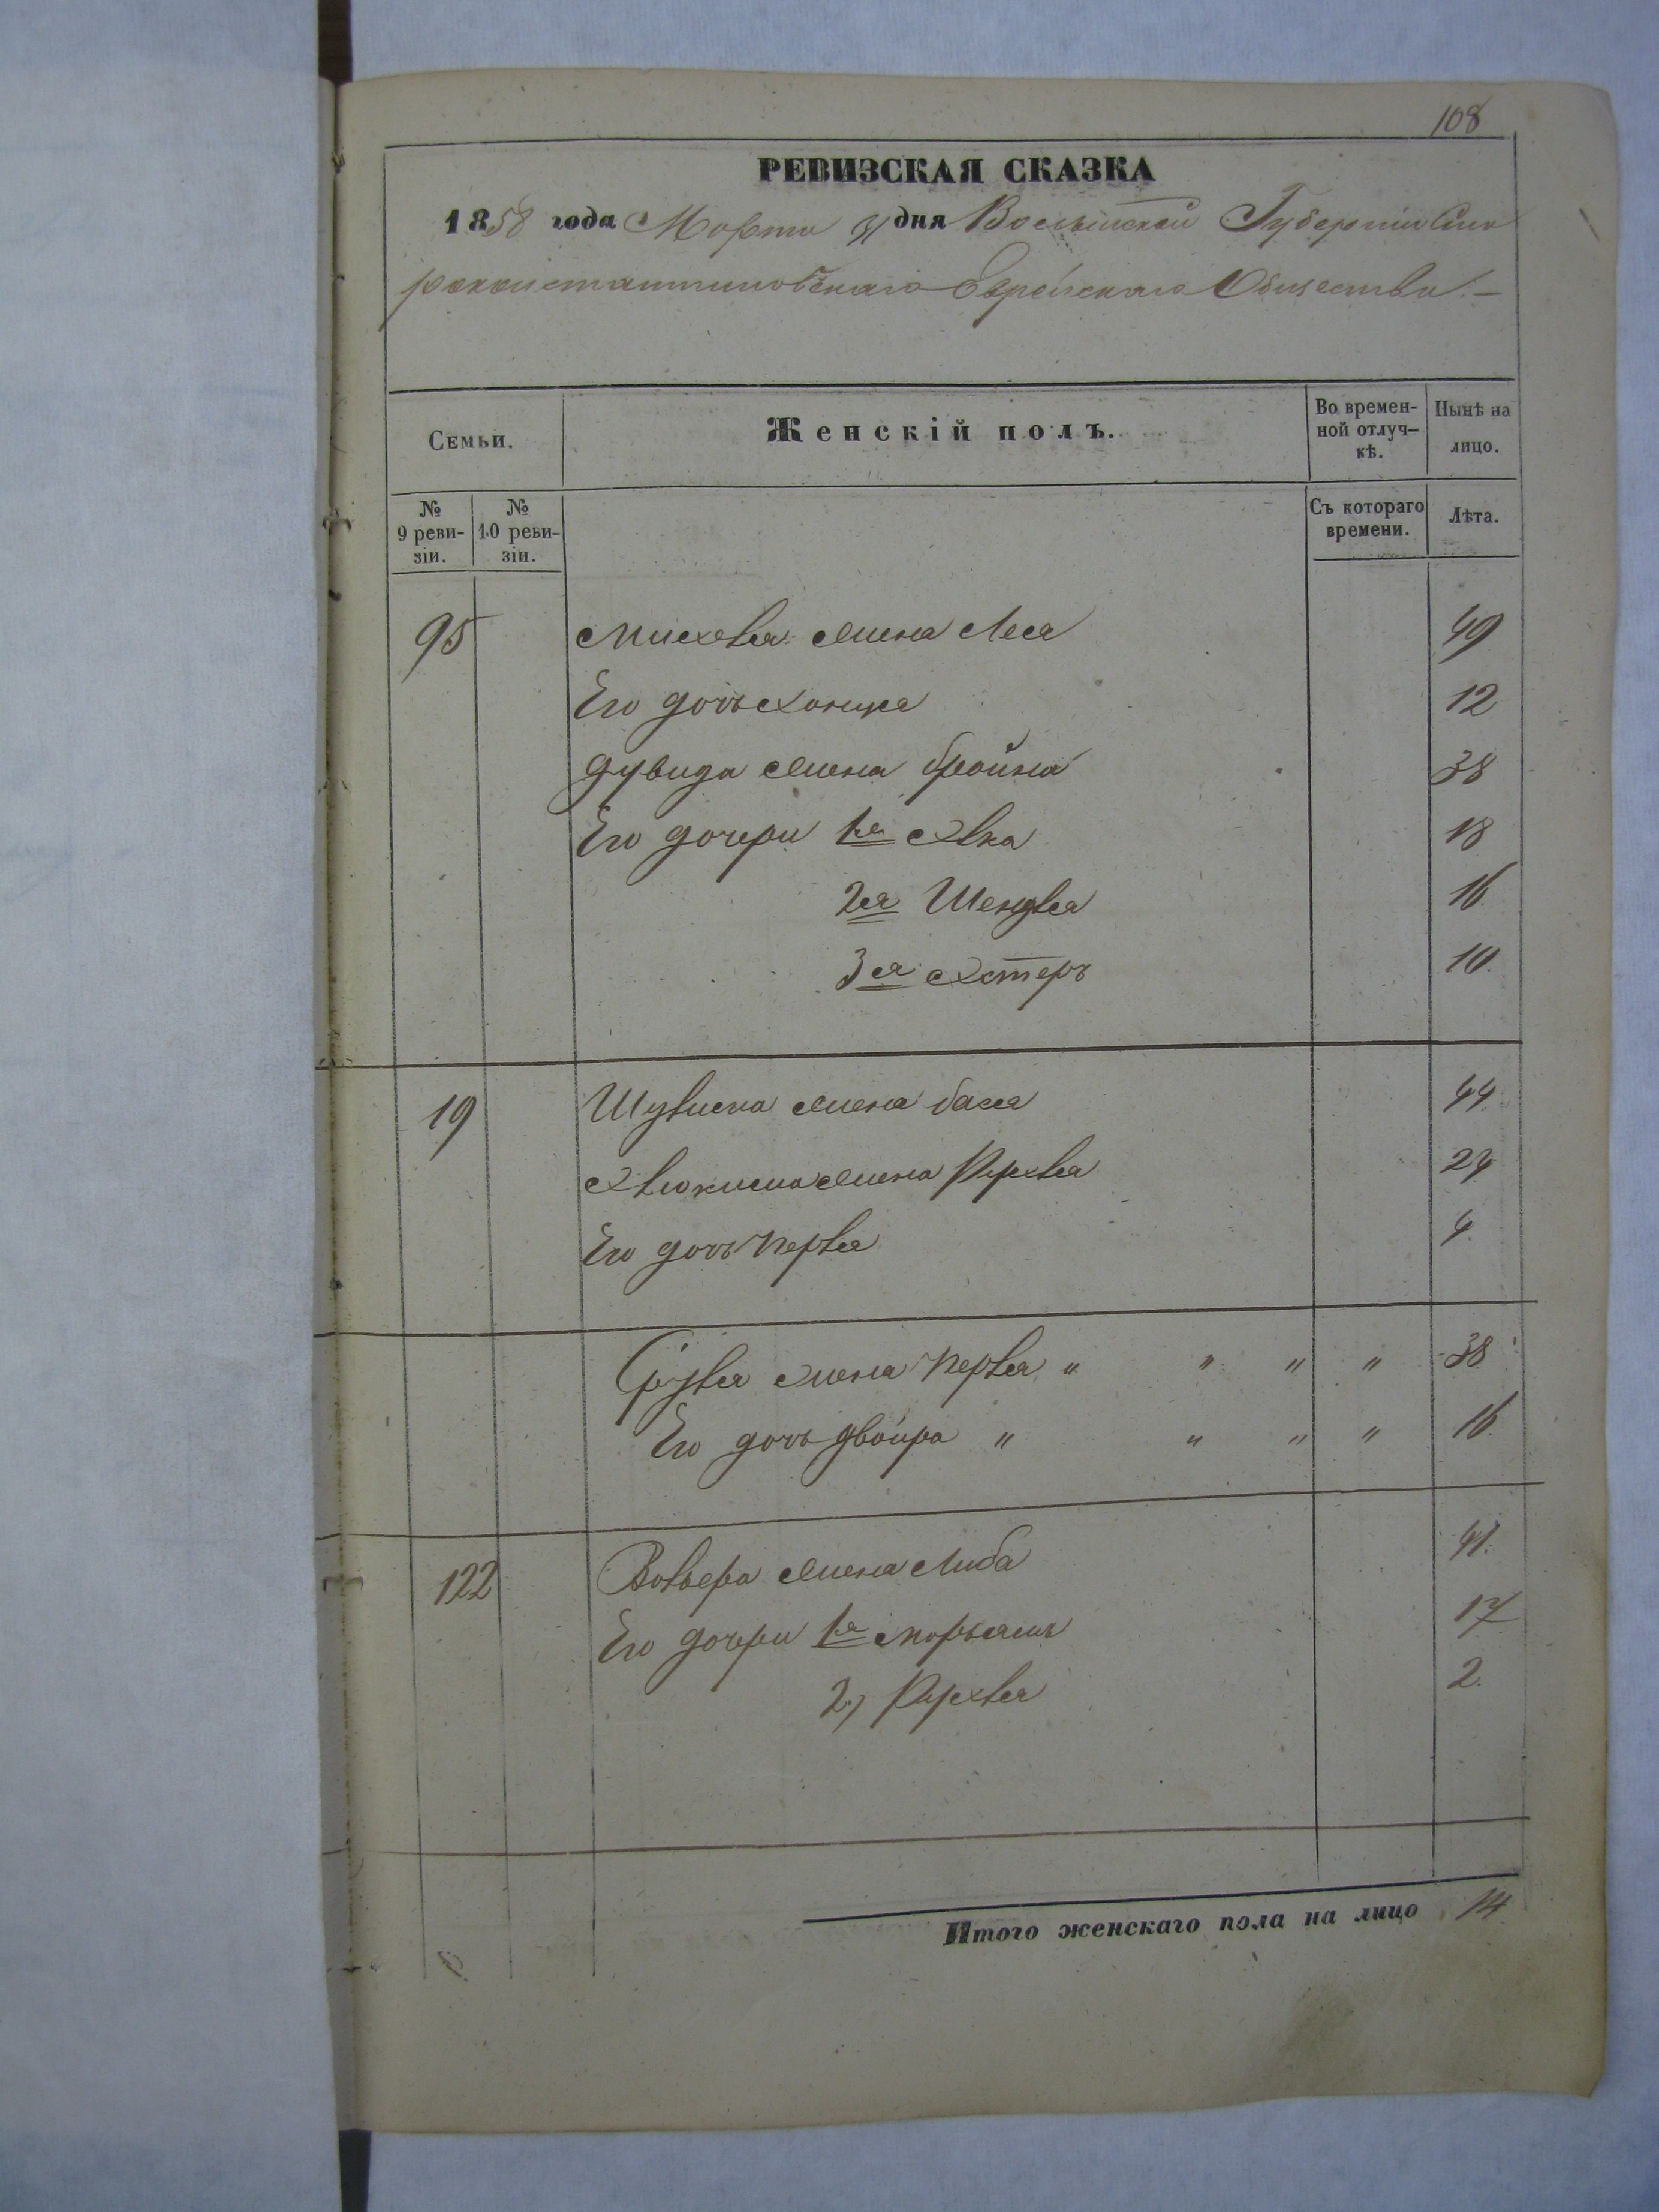 108
РЕВИЗСКАЯ СКАЗКА
1858 года Марта 31 дня Волынской Губерніи Ста
роконстантиновскаго Еврейскаго Общества. —
Семьи.
Женскій полъ.
Во времен-
ной отлуч-
кѣ.
Нынѣ на
лицо.
№
9 реви-
зіи.
№
10 реви-
зіи.
Съ котораго
времени.
Лѣта.
95 Михеля жена Лея 49
Его дочь 12
Дувида жена Фройма 38
Его дочери 1я Хвка 18
2я Шендля 16
3я Эстеръ 10
19 жена Бася 44
жена Рухля 24
Его дочь Перля 4
Сруля жена Перля " " " " 38
Его дочь Двойра " " " " 16
122 жена Либа 41
Его дочери 1я Марьямъ 17
2, Рухля 2
Итого женскаго пола на лицо 14